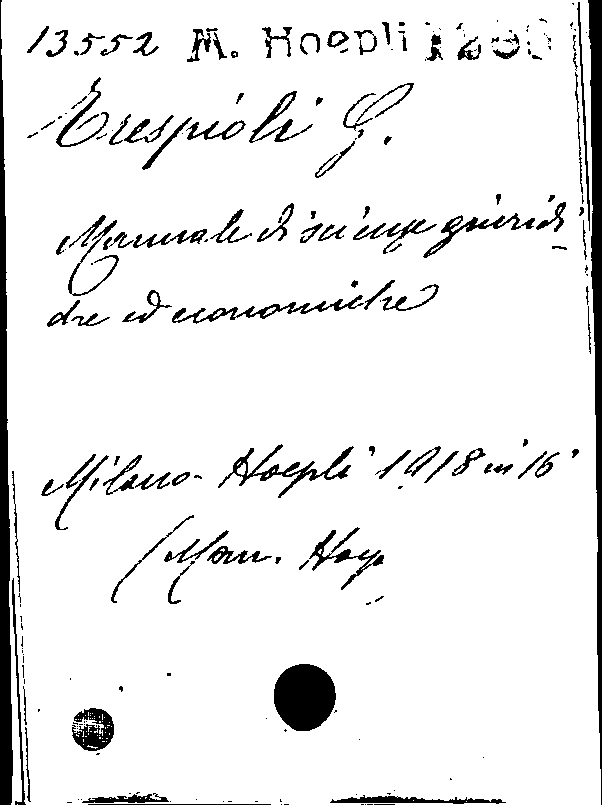 13552 M. Hoepli
Trespioli G.
Manuale di scienze giuridi-
che ed economiche
Milano - Hoepli 1918 in 16°
(Man. Hoep